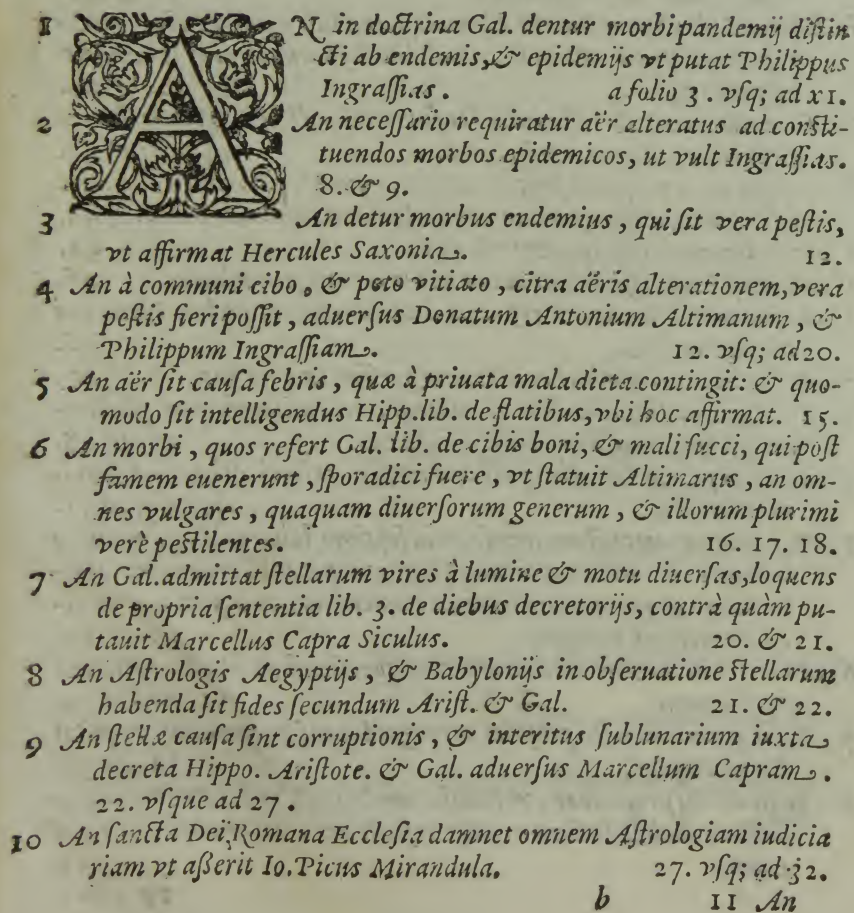 1 AN in doctrina Gal. dentur morbi pandemij distin
cti ab endemis, & epidemijs vt putat Philippus
Ingrassias. a folio 3. vsq; ad xi.
2 An necessario requiratur aër alteratus ad consti-
tuendos morbos epidemicos, ut vult Ingrassias.
8. & 9.
3 An detur morbus endemius, qui sit vera pestis,
vt affirmat Hercules Saxonia. 12.
4 An à communi cibo, & poto vitiato, citra aëris alterationem, vera
pestis fieri possit, aduersus Donatum Antonium Altimanum, &
Philippum Ingrassiam. 12. vsq; ad 20.
5 An aër sit causa febris, quæ à priuata mala dieta contingit: & quo-
modo sit intelligendus Hipp. lib. de flatibus, vbi hoc affirmat. 15.
6 An morbi, quos refert Gal. lib. de cibis boni, & mali succi, qui post
famem euenerunt, sporadici fuere, vt statuit Altimarus, an om-
nes vulgares, quaquam diuersorum generum, & illorum plurimi
verè pestilentes. 16. 17. 18.
7 An Gal. admittat stellarum vires à lumine & motu diuersas, loquens
de propria sententia lib. 3. de diebus decretorijs, contrà quàm pu-
tauit Marcellus Capra Siculus. 20. & 21.
8 An Astrologis Aegyptijs, & Babylonijs in obseruatione stellarum
habenda sit fides secundum Arist. & Gal. 21. & 22.
9 An stellæ causa sint corruptionis, & interitus sublunarium iuxta
decreta Hippo. Aristote. & Gal. aduersus Marcellum Capram.
22. vsque ad 27.
10 An sancta Dei, Romana Ecclesia damnet omnem Astrologiam iudicia
riam vt aßerit Io. Picus Mirandula. 27. vsq; ad 32.
b 11 An